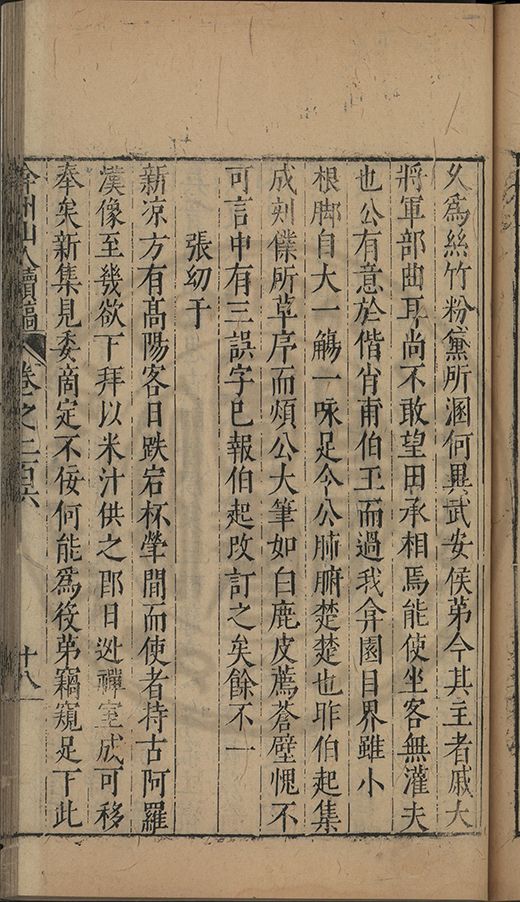 久為絲竹粉黛所溷何異武安侯第今其主者戚大
將軍部曲耳尚不敢望田丞相焉能使坐客無灌夫
也公有意於偕肖甫伯玉而過我弇園目界雖小
根腳自大一觴一咏足令公肺腑楚楚也昨伯起集
成刻僕所草序而煩公大筆如白鹿皮薦蒼璧愧不
可言中有三誤字已報伯起改訂之矣餘不一
張幼于
新凉方有高陽客日跌宕杯斝間而使者持古阿羅
漢像至幾欲下拜以米汁供之郎日逃禪室成可移
奉矣新集見委商定不佞何能為役第竊窺足下此
弇州山人續稿 卷之二百六 十八